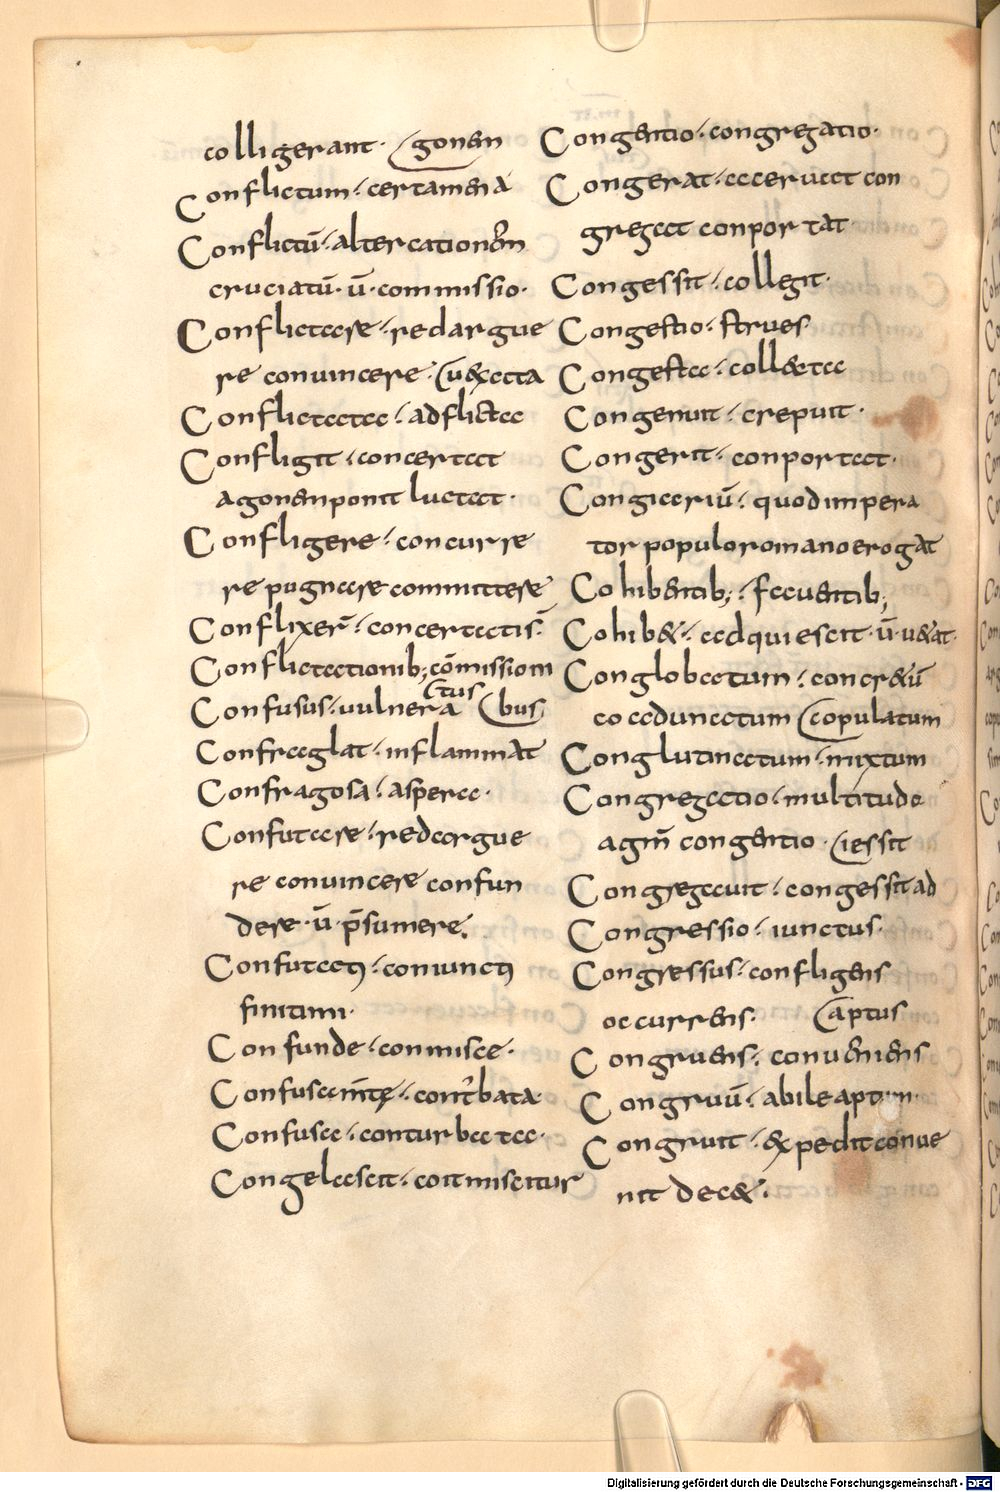 colligerant · gonen
Conflictum · certamena
Conflictū · altercationem
cruciatū · ū · commissio ·
Conflictare · redargue
re conuincere · uexata
Conflictatae · adflictae
Confligit · concertat
agonem ponit luctat ·
Confligere · concurre
re pugnare committere
Conflixer̄ · concertatis ·
Conflictationib; cōmissioni
Confusus · uulneratus bus
Confraglat · inflammat
Confragosa · aspera ·
Confutare · redargue
re conuincere confun
dere · ū · p̄sumere.
Confutatꝰ · coniunctꝰ
finitimi ·
Confunde · conmisce ·
Confusa mte · conturbata
Confusa · conturbatae ·
Congelascit · coit miscitur
Congentio · congregatio ·
Congerat · aceruat con
gregat conportat
Congessit · collegit ·
Congestio · strues
Congesta · collecta
Congemuit · crepuit ·
Congerit · conportat ·
Congiariū · quod impera
tor populo romano erogat
Cohibentib; · fauentib;
Cohib& · adquiescit · ū · u&at ·
Conglobatum · concr&ū
coadunatum copulatum
Conglutinatum · mixtum
Congregatio · multitudo
agm̄ congentio · iessit
Congregauit · congessit ad
Congressio · iunctus ·
Congressus · confligens
occurrens · aptus
Congruens · conueniens
Congruū · abile aptum ·
Congruit · expedit conue
nit dec& ·
Digitalisierung gefördert durch die Deutsche Forschungsgemeinschaft - DFG